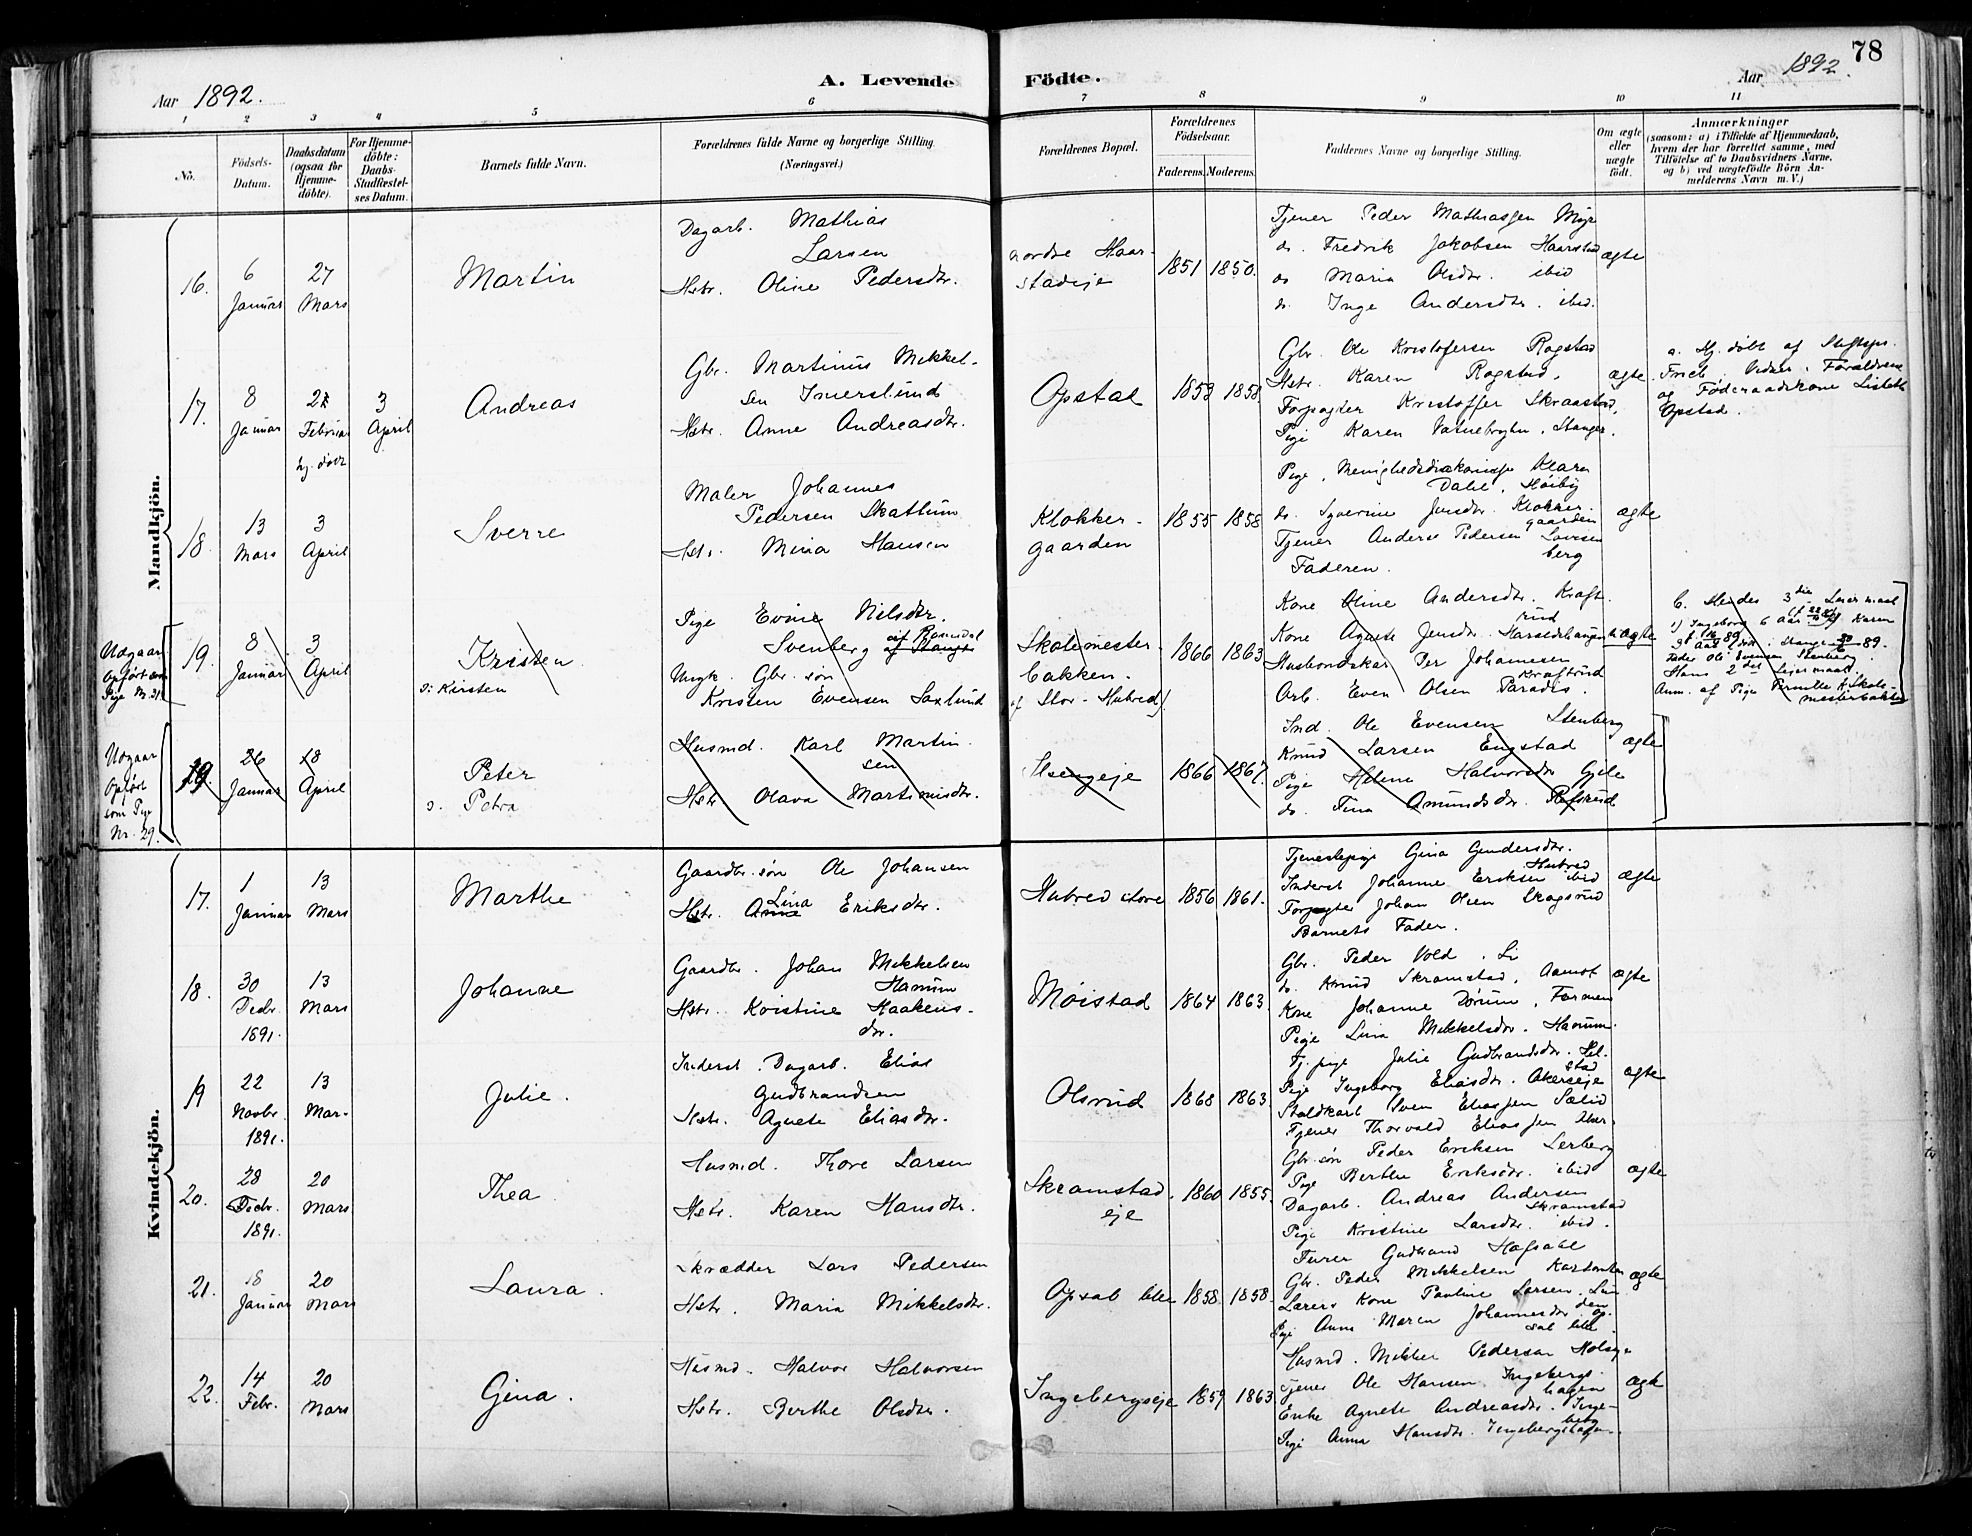 78
Aar 1892.
A. Levende Födte.
Aar 1892.
1 2 3 4 5 6 7 8 9 10 11
No.
Födsels-
Datum.
Daabsdatum
(ogsaa for
Hjemme-
döbte).
For Hjemme-
döbte:
Daabs-
Stadfæstel-
ses Datum.
Barnets fulde Navn.
Forældrenes fulde Navne og borgerlige Stilling.
(Næringsvei.)
Forældrenes Bopæl.
Forældrenes
Födselsaar.
Faderens. Moderens.
Faddernes Navne og borgerlige Stilling.
Om ægte
eller
uægte
födt.
Anmærkninger
(saasom: a) i Tilfælde af Hjemmedaab,
hvem der har forrettet samme, med
Tilföielse af to Daabsvidners Navne,
og b) ved uægtefödte Börn An-
melderens Navn m. V.)
Mandkjön.
16.
6
Januar
27
Mars
Martin
Dagarb. Mathias
Larsen
Hstr. Oline Pedersdtr.
nordre Haar-
stadeje
1851 1850.
Tjener Peder Mathiassen Myr
do. Fredrik Jakobsen Haarstad
do Maria Olsdtr. ibid
do. Inge Andersdtr. ibid.
ægte
17.
8
Januar
Februar
hj. döbt
3
April
Andreas
Gbr. Martinus Mikkel-
sen Imerslund
Hstr. Anne Andreasdtr.
Opstad
1853 1858
Gbr. Ole Kristofersen Rogstad
Hstr. Karen Rogstad,
Forpagter Kristoffer Skraastad,
Pige Karen Stanger.
ægte
a. Hj. døbt af
Vidner: Forældrene
og Føderaadskone Lisbeth
Opstad.
18.
13
Mars
3
April
Sverre
Maler Johannes
Pedersen Skattum
Hstr. Mina Hansen
Klokker-
gaarden
1855 1858
Pige, Menighedsdiakonisse Klara
Dahl, Høiby
do. Syverine Jensdtr. Klokker-
gaarden
Tjener Anders Pedersen Lovisen
berg
Faderen.
ægte
Udgaar
Opført som
Pige N. 31
19.
8
Januar
3
April
Kristen
o: Kirsten
Pige Evine Nilsdtr.
Svenberg af Romedal
af Stange
Ungk. Gbr. søn
Kristen Evensen Saxlund
Skolemester-
bakken.
af Stor-Hubred)
1866 1863
Kone Oline Andersdtr. Kraft-
rud
Kone Agnete Jensdtr.
Husbondskar Per Johannesen
Kraftrud
Arb. Even Olsen Paradis.
uægte
b. Hendes 3die Leiermaal
1) Ingeborg 6 Aar Karen
Fader Ole Evensen Stenberg
Hans 2det Leiermaal.
Anm. af Pige Pernille Skole-
mesterbakken
Udgaar
Opført
som Pige
Nr. 29.
19.
26
Januar
18
April
Peter
o. Petra
Husmd. Karl Martin-
sen
Hstr Olava Martinusdtr.
Stengeje
1866 1867.
Ind. Ole Evensen Stenberg
Knud Larsen Engstad
Pige Helene Halvorsdtr Gjele
do. Tina Amundsdtr. Refsrud
ægte
Kvindekjön.
17.
1
Januar
13
Mars
Marthe
Gaardbr. søn Ole Johansen
Lina
Hstr. Anne Eriksdtr.
Hubred store
1856 1861.
Tjenestepige Gina Gundersdtr.
Hubred
Inderst Johanne Eriksen ibid
Forpagter Johan Olsen Skogsrud
Barnets Fader.
ægte
18.
30
Decbr.
1891.
13
Mars
Johanne
Gaardbr. Johan Mikkelsen
Harum
Hstr. Kristine Haakens-
dtr.
Møistad
1864 1863.
Gbr. Peder Vold. Li
do. Knud Skramstad, Aamot
Kone Johanne Dørum, Farmen
Pige Lina Mikkelsdtr. Harum.
ægte
19
22
Novbr.
1891.
13
Mar-
Julie.
Inderst. Dagarb. Elias
Gudbrandsen
Hstr. Agnete Eliasdtr.
Olsrud
1868 1863.
Tj. pige Julie Gudbrandsdtr. Hel-
stad
Pige Ingeborg Eliasdtr. Akerseje
Staldkarl Sven Eliassen Sælid
Tjener Thorvald Eliassen Aker-
ægte
20.
28
Decbr.
1891.
20
Mars
Thea
Husmd. Thore Larsen
Hstr. Karen Hansdtr.
Skramstad
eje
1860 1855.
Gbr. søn Peder Eriksen Lerberg
Pige Berthe Eriksdtr. ibid
Dagarb. Andreas Andersen
Skramstad
Pige Kristine Larsdtr. ibid.
ægte
21.
18
Januar
20
Mars
Laura.
Skrædder Lars Pedersen
Hstr. Maria Mikkelsdtr.
Opsal lille
1858. 1858.
Furer Gudbrand Hafsahl
Gbr. Peder Mikkelsen
Lærers Kone Pauline Larsen. Lin-
den
Pige Anne Maren Johannesdtr. Op-
sal lille.
ægte
22.
14
Febr.
20
Mars
Gina.
Husmd. Halvor Halvorsen
Hstr. Berthe Olsdtr.
Ingebergseje
1859 1863
Husmd. Mikkel Pedersen
Tjener Ole Hansen Ingebergs-
hagen
Enke Agnete Andreasdtr. Inge-
berg
Pige Anna Hansdtr. Ingebergshagen.
ægte